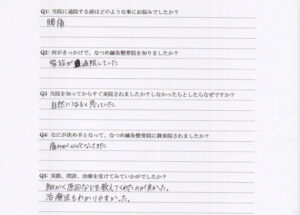 Q1: 当院に通院する前はどのような事にお悩みでしたか?
腰痛
Q2: 何がきっかけで、なつめ鍼灸整骨院を知りましたか?
家族が通院していた
Q3: 当院を知ってからすぐ来院されましたか?しなかったらとしたらなぜですか?
自然に治ると思っていた
Q4: なにが決め手となって、なつめ鍼灸整骨院に御来院されましたか?
痛みがひどくなってきた
Q5: 実際、問診、治療を受けてみていかがでしたか?
細かく原因などを教えてくれたのが良かった。
治療法もわかりやすかった。